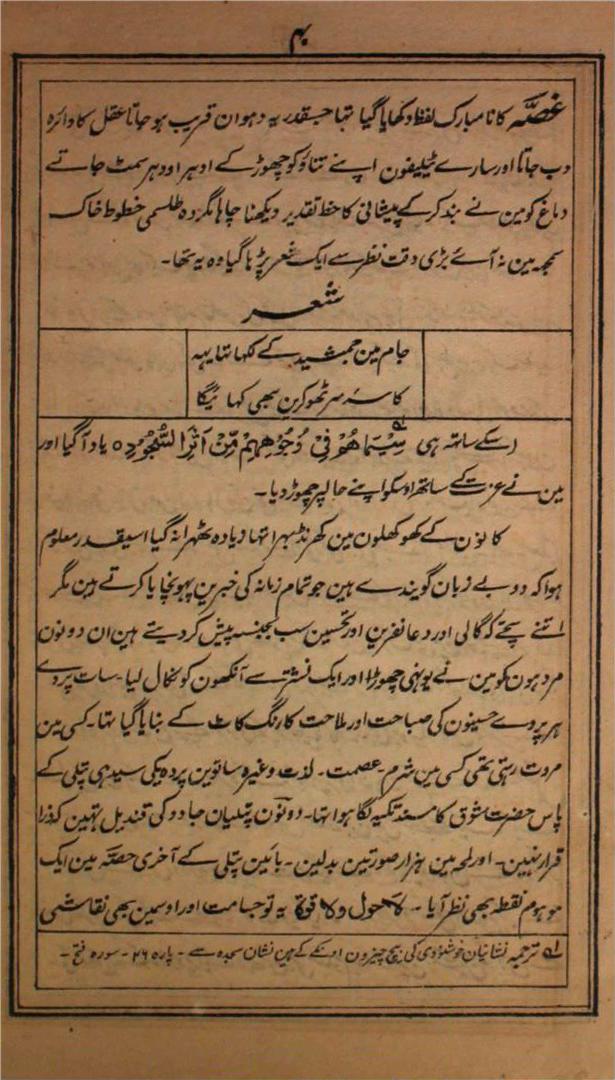 ۴
غصّہ کا نامبارک لفظ دکھایا گیا تہا جسقدر یہ دہوان قریب ہو جاتا عقل کا دائرہ
دب جاتا اور سارے ٹیلیفون اپنے تناؤ کو چھوڑ کے ادہر اودہر سمٹ جاتے
دماغ کو مین نے بند کرکے پیشانی کا خط تقدیر دیکھنا چاہا مگر وہ طلسمی خطوط خاک
سمجہ مین نہ آئے بڑی دقت نظر سے ایک شعر پڑہا گیا وہ یہ تھا۔
شعر
جام مین جمشید کے لکہا تہا یہہ
کاسۂ سر ٹھوکرین بھی کہا ئیگا
اسکے ساتہہ ہی سِیْمَاهُمْ فِیْ وُجُوْهِهِمْ مِّنْ اَثَرِ السُّجُوْدِ ہ یاد آگیا اور
مین نے عزت کے ساتھ اوسکو اپنے حالپر چھوڑ دیا۔
کانون کے کھوکھلون مین کھرنڈ بہرا تہا زیادہ ٹھہرا نہ گیا اسیقدر معلوم
ہوا کہ دو بے زبان گویندے ہین جو تمام زمانہ کی خبرین پہونچایا کرتے ہین مگر
اتنے سچے کہ گالی اور دعا نفرین اور تحسین سب بجنسہ پیش کر دیتے ہین ان دونون
مردہون کو مین نے یونہی چھوڑا اور ایک نشتر سے آنکھون کو نکال لیا۔ سات پردے
ہر پردے حسینون کی صباحت اور ملاحت کا رنگ کاٹ کے بنایا گیا تہا۔ کسی مین
مروت رہتی تھی کسی مین شرم۔ عصمت۔ لذت وغیرہ ساتوین پردہ کی سیدہی پتلی کے
پاس حضرت شوق کا مسند تکیہ لگا ہوا تہا۔ دونون پتلیان جادو کی قندیل تہین کذرا
قرار نہین۔ اور لمحہ مین ہزار صورتین بدلین۔ بائین پتلی کے آخری حصّہ مین ایک
موہوم نقطہ بھی نظر آیا۔ لاحول ولا قوۃ یہ تو جسامت اور اوسمین بھی نقاشی
لہ ترجمہ نشانیان خوشنودی کی بیچ چہرون اونکے کے ہین نشان سجدہ سے۔ پارہ ۲۶۔ سورہ فتح۔